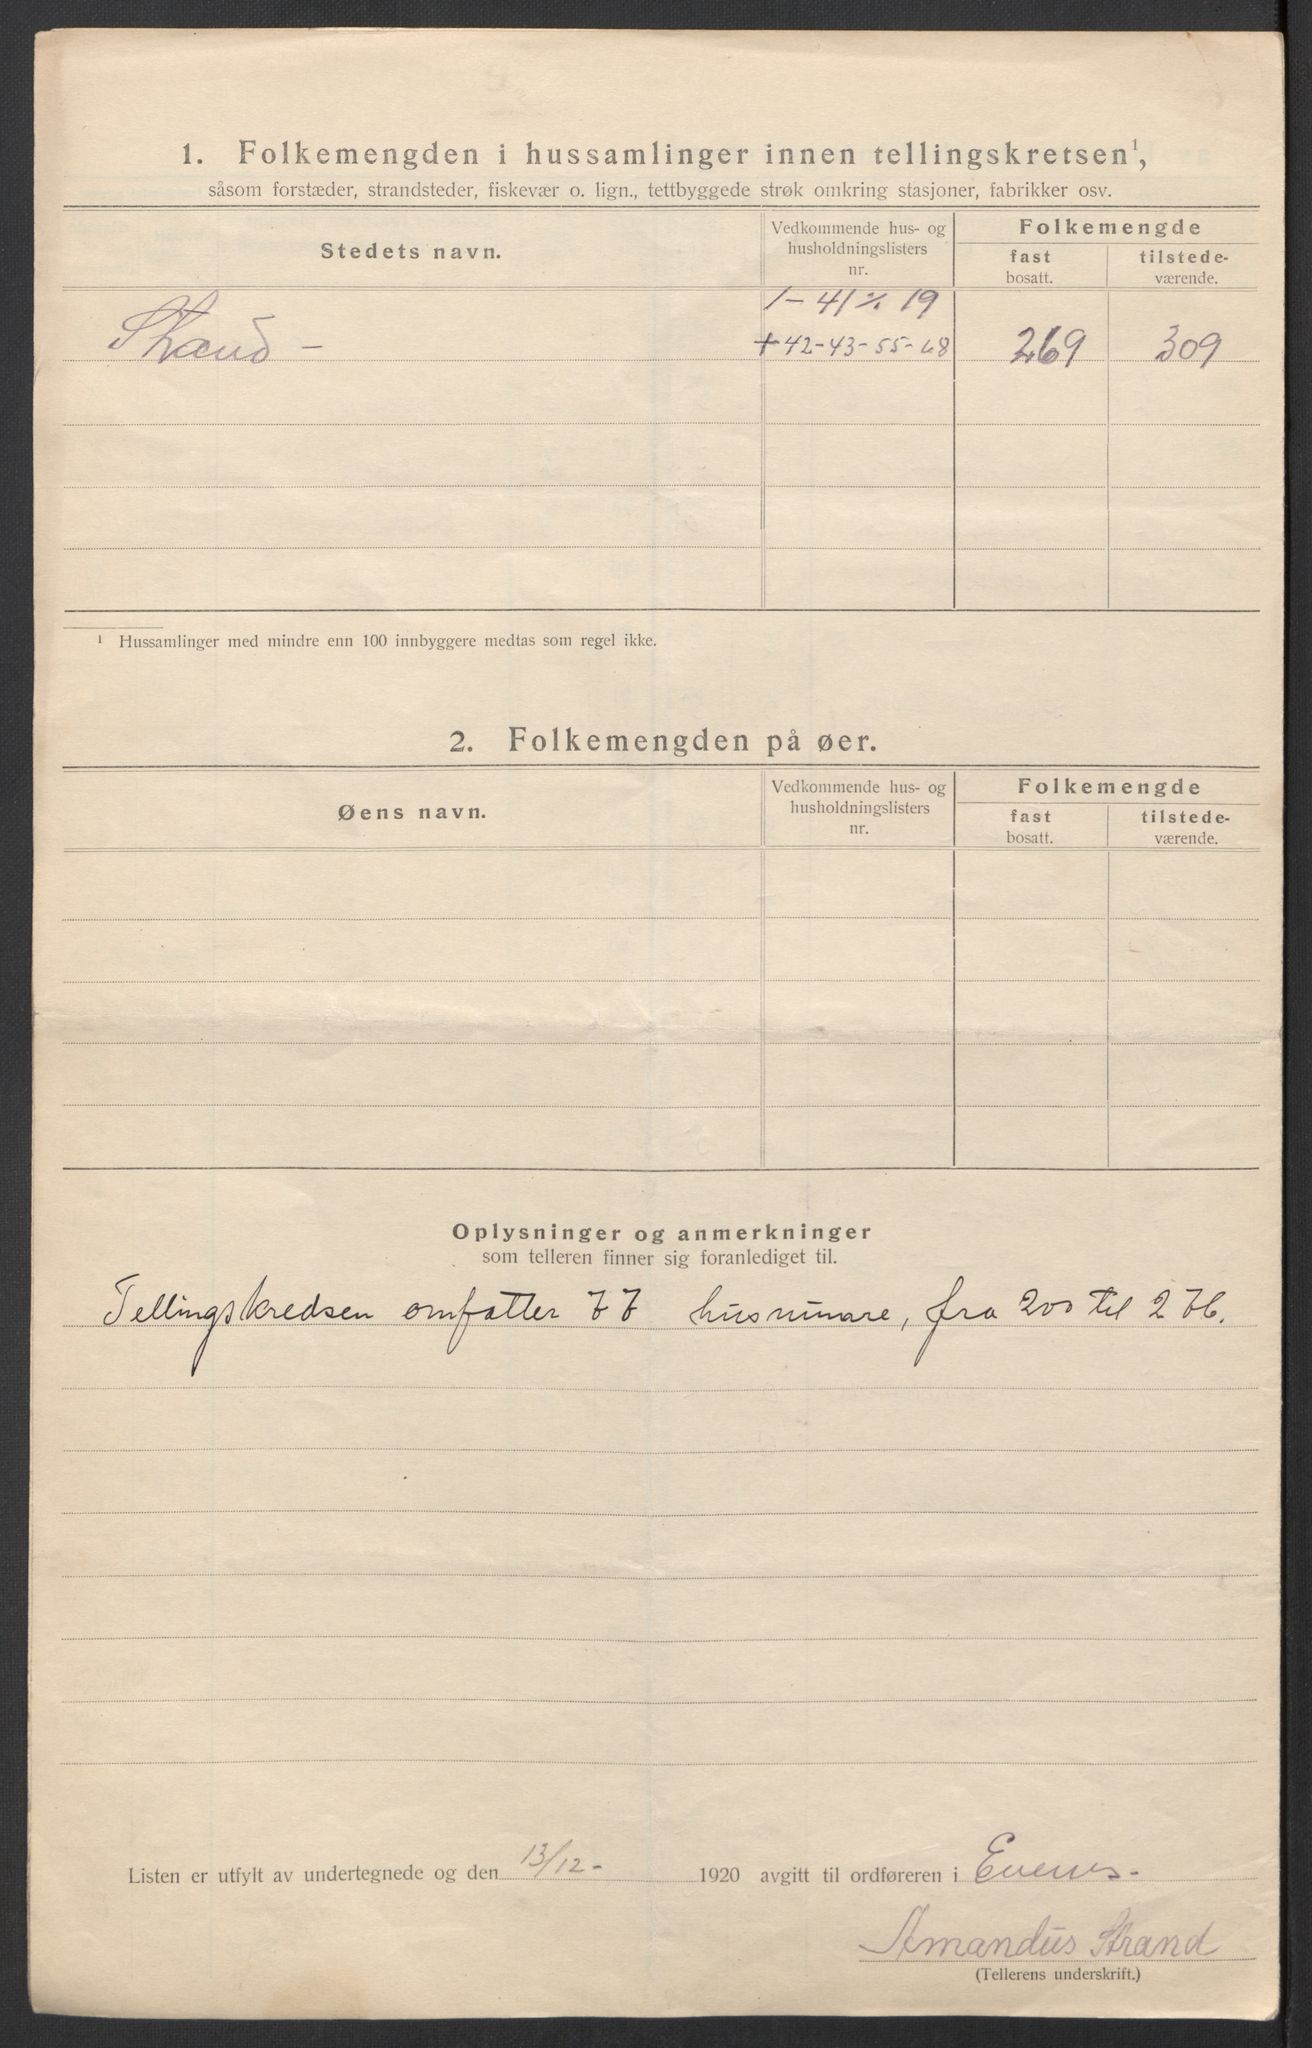 1. Folkemengden i hussamlinger innen tellingskretsen¹,
såsom forstæder, strandsteder, fiskevær o. lign., tettbyggede strøk omkring stasjoner, fabrikker osv.
Stedets navn.
Vedkommende hus- og
husholdningslisters
nr.
Folkemengde
fast
bosatt.
tilstede-
værende.
1 - 41 ⁒ 19
Strand -
+ 42-43-55-68
269
309
¹ Hussamlinger med mindre enn 100 innbyggere medtas som regel ikke.
2. Folkemengden på øer.
Øens navn.
Vedkommende hus- og
husholdningslisters
nr.
Folkemengde
fast
bosatt.
tilstede-
værende.
Oplysninger og anmerkninger
som telleren finner sig foranlediget til.
Tellingskredsen omfatter 77 husnumre, fra 200 til 276.
Listen er utfylt av undertegnede og den 13/12- 1920 avgitt til ordføreren i Evenes.
Amandus Strand
(Tellerens underskrift.)